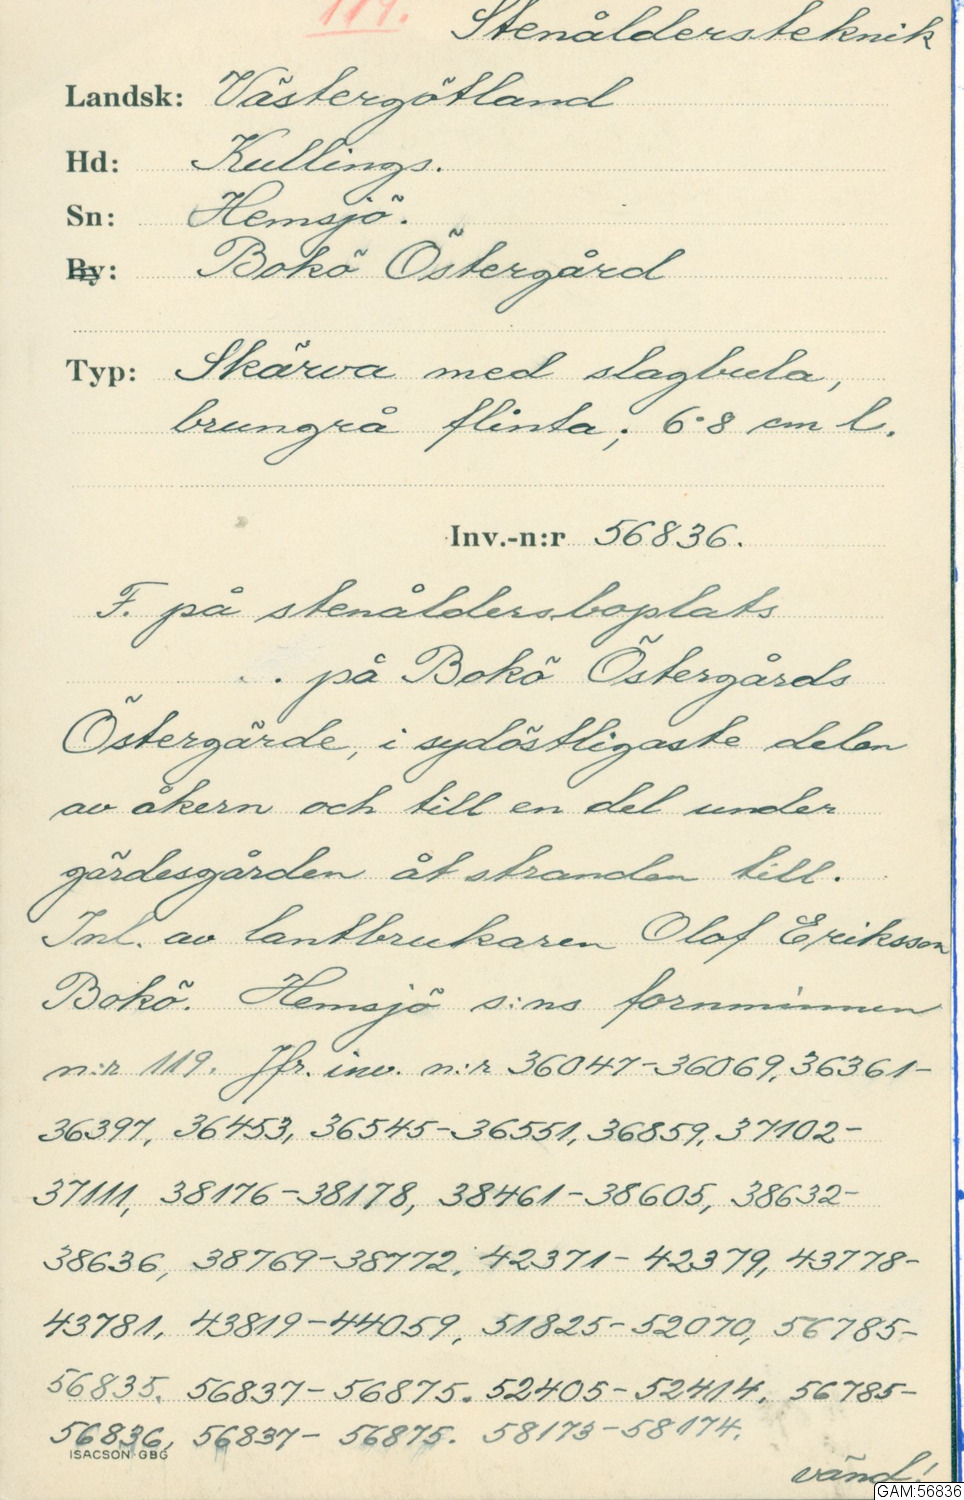 119.
Stenåldersteknik
Landsk: Västergötland
Hd: Kullings.
Sn: Hemsjö.
By: Bokö Östergård
Typ: Skärva med slagbula,
brungrå flinta; 6·8 cm l.
Inv.-n:r 56836.
F. på stenåldersboplats
på Bokö Östergårds
Östergärde, i sydöstligaste delen
av åkern och till en del under
gärdesgården åt stranden till.
Inl. av lantbrukaren Olof Eriksson
Bokö. Hemsjö s:ns fornminnen
n:r 119. Jfr. inv. n:r 36047-36069, 36361-
36397, 36453, 36545-36551, 36859, 37102-
37111, 38176-38178, 38461-38605, 38632-
38636, 38769-38772, 42371-42379, 43778-
43781, 43819-44059, 51825-52070, 56785-
56835. 56837-56875. 52405-52414, 56785-
56836, 56837-56875. 58173-58174.
ISACSON GBG
vänd!
GAM:56836